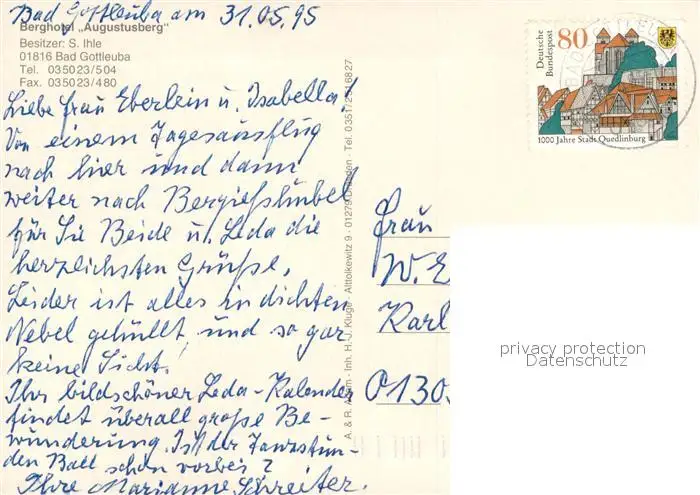 Bad Gottleuba am 31.05.95
Berghotel „Augustusberg"
Besitzer: S. Ihle
01816 Bad Gottleuba
Tel. 035023/504
Fax. 035023/480
Liebe Frau Eberlein u. Isabella!
Von einem Tagesausflug
nach hier und dann
weiter nach Bergießhübel
für Sie Beide u. Leda die
herzlichsten Grüße.
Leider ist alles in dichten
Nebel gehüllt und so gar
keine Sicht!
Ihr bildschöner Leda-Kalender
findet überall große Be-
wunderung. Ist der
den Ball schon vorbei?
Ihre Marianne Schreiter.
A. & R. Adam - Inh. H. J. Kluge - Alttolkewitz 9 - 01279 Dresden - Tel. 0351/2376827
Deutsche
Bundespost
80
1000 Jahre Stadt Quedlinburg
Frau
W. E
Karl
01309
privacy protection
Datenschutz